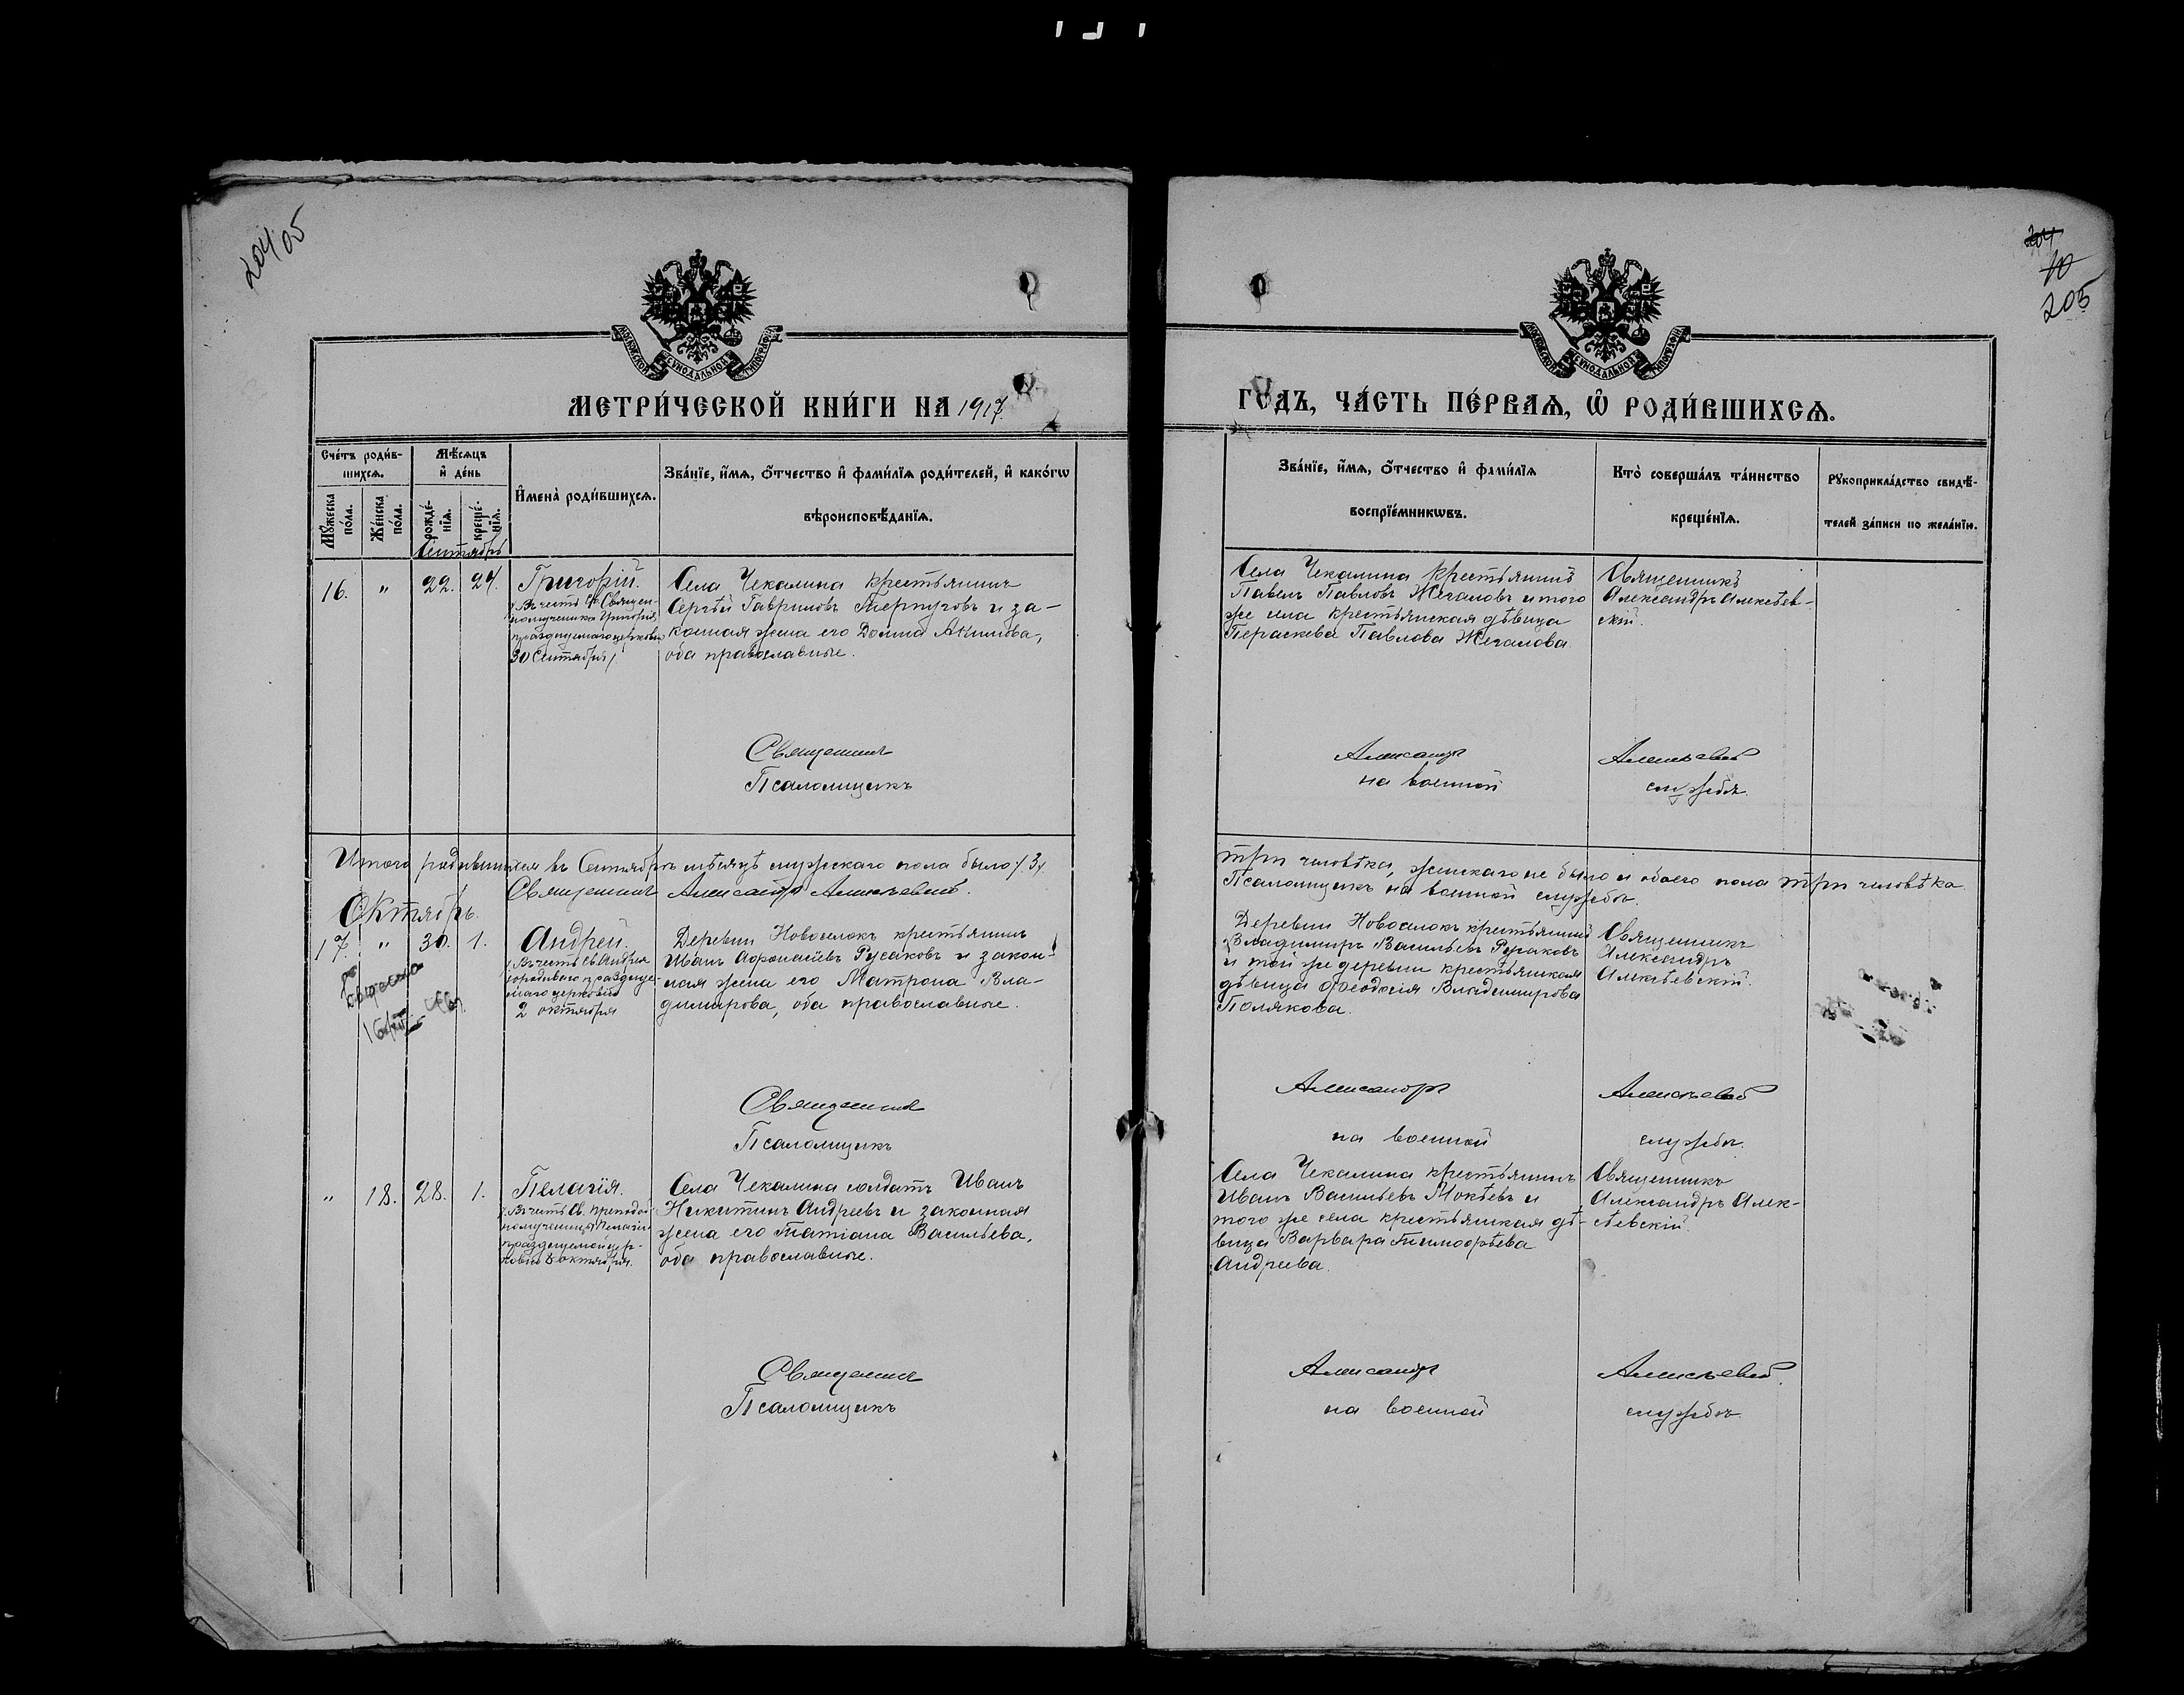 204 05
204
10
205
МОСКОВСКОЙ СѴНОДАЛЬНОЙ ТИПОГРАФІИ
МОСКОВСКОЙ СѴНОДАЛЬНОЙ ТИПОГРАФІИ
МЕТРИ́ЧЕСКОЙ КНИ́ГИ НА 1917
ГОДЪ, ЧА́СТЬ ПЕ́РВАѦ, Ѡ҆ РОДИ́ВШИХСѦ.
Сче́тъ роди́в-
шихсѧ.
Мꙋ́жеска по́ла.
Же́нска по́ла.
Мѣ́сѧцъ
и҆ де́нь
рожде́-
нїѧ.
креще́-
нїѧ.
И҆мена̀ роди́вшихсѧ.
Зва́нїе, и҆́мѧ, ѻ҆́тчество и҆ фами́лїѧ роди́телей, и҆ како́гѡ
вѣроисповѣ́данїѧ.
Зва́нїе, и҆́мѧ, ѻ҆́тчество и҆ фами́лїѧ
воспрїе́мникѡвъ.
Кто̀ соверша́лъ та́инство
креще́нїѧ.
Рꙋкоприкла́дство свидѣ́-
телей за́писи по жела́нїю.
Сентябрь
16. " 22. 24. Григорій.
/Въ честь Св. Священ-
номученика Григорія,
празднуемаго церковію
30 Сентября/
Села Чекалина крестьянинъ
Сергѣй Гавриловъ Терпуговъ и за-
конная жена его Домна Акимова,
оба православные.
Села Чекалина крестьянинъ
Павелъ Павловъ Жегаловъ и того
же села крестьянская дѣвица
Пераскева Павлова Жегалова
Священникъ
Александръ Алексѣев-
скій.
Священникъ Александръ Алексѣевскій
Псаломщикъ на военной службѣ.
Итого родившихся въ Сентябрѣ мѣсяцѣ мужескаго пола было /3/
три человѣка, женскаго не было и обоего пола три человѣка.
Священникъ Александръ Алексѣевскій.
Псаломщикъ на военной службѣ.
Октябрь.
17. " 30. 1. Андрей.
/Въ честь Св. Андрея
юродиваго празднуе-
маго церковію
2 октября
Деревни Новоселокъ крестьянинъ
Иванъ Афонасіевъ Русаковъ и закон-
ная жена его Матрона Вла-
димирова, оба православные.
Деревни Новоселокъ крестьянинъ
Владимиръ Васильевъ Русаковъ
и той же деревни крестьянская
дѣвица Феодосія Владимирова
Полякова.
Священникъ
Александръ
Алексѣевскій.
Священникъ Александръ Алексѣевскій
Псаломщикъ на военной службѣ.
" 18. 28. 1. Пелагія.
/Въ честь Св. Преподоб-
номученицы Пелагіи
празднуемой цер-
ковію 8 октября.
Села Чекалина солдатъ Иванъ
Никитинъ Андреевъ и законная
жена его Татіана Васильева,
оба православные.
Села Чекалина крестьянинъ
Иванъ Васильевъ Мокѣевъ и
того же села крестьянская дѣ-
вица Варвара Тимофѣева
Андреева.
Священникъ
Александръ Алек-
сѣевскій.
Священникъ Александръ Алексѣевскій.
Псаломщикъ на военной службѣ.